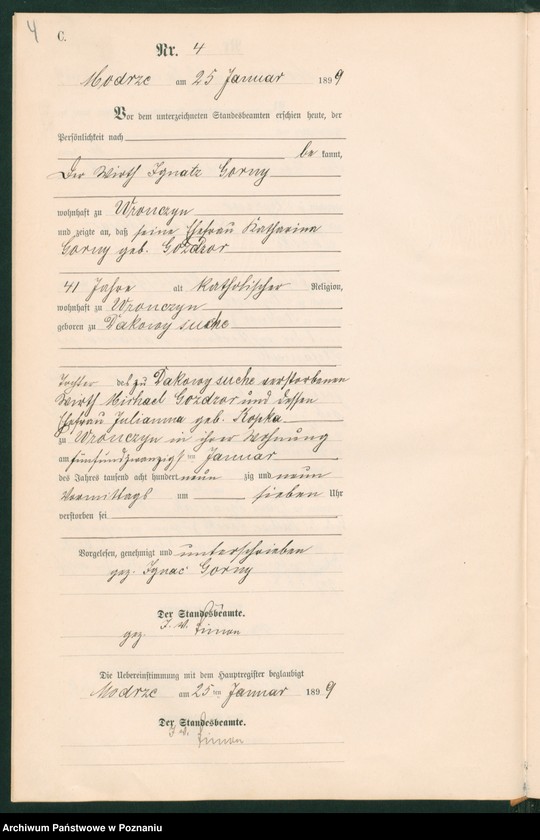 4
C.
Nr. 4
Modrze am 25 Januar 1899
Vor dem unterzeichneten Standesbeamten erschien heute, der
Persönlichkeit nach
be kannt,
Der Wirth Ignatz Gorny
wohnhaft zu Wronczyn
und zeigte an, daß seine Ehefrau Katharina
Gorny geb. Gozdzor
41 Jahre alt katholischer Religion,
wohnhaft zu Wronczyn
geboren zu Dakowy suche
Tochter des zu Dakowy suche verstorbenen
Wirth Michael Gozdzor und dessen
Ehefrau Julianna geb. Kopka
zu Wronczyn in ihrer Wohnung
am fünfundzwanzigsten Januar
des Jahres tausend acht hundert neun zig und neun
Vormittags um sieben Uhr
verstorben sei
Vorgelesen, genehmigt und unterschrieben
gez. Ignac Gorny
Der Standesbeamte.
gez. I. V. Simon
Die Uebereinstimmung mit dem Hauptregister beglaubigt
Modrze am 25ten Januar 1899
Der Standesbeamte.
I. V. Simon
Archiwum Państwowe w Poznaniu